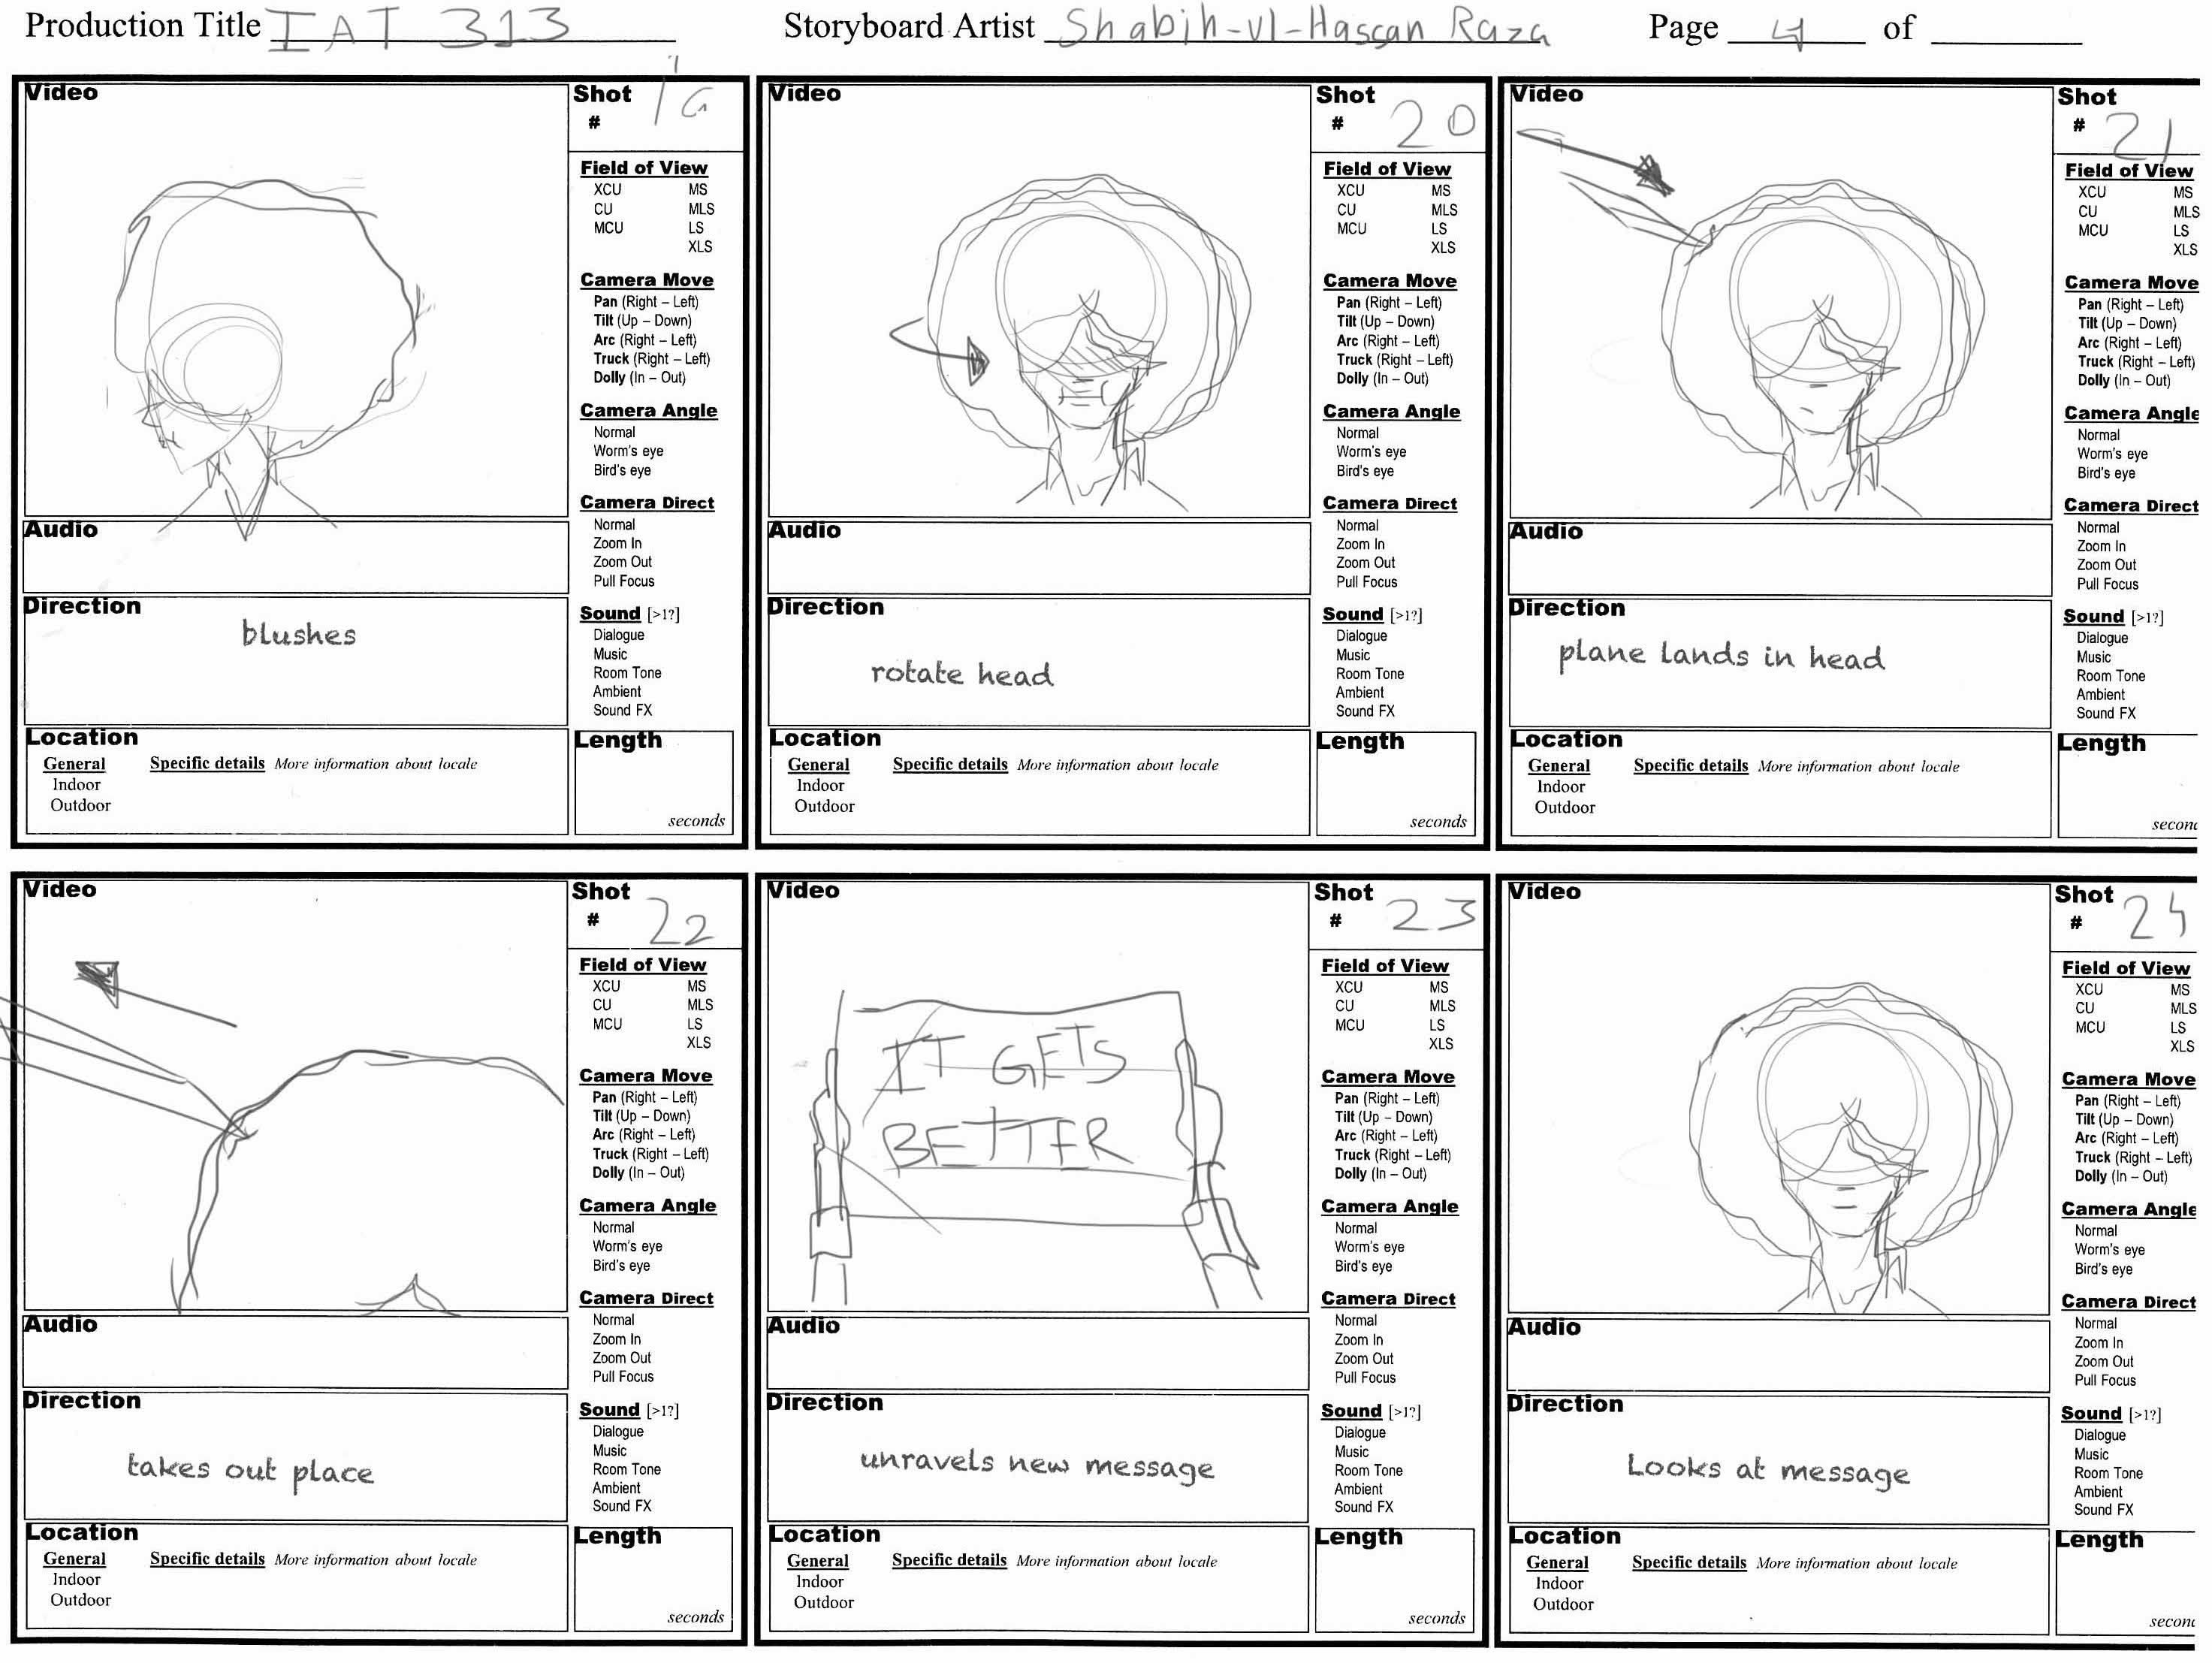 Production Title IAT 313 Storyboard Artist Shabih-ul-Hassan Raza Page 4 of
Video
Shot
# 19
Field of View
XCU MS
CU MLS
MCU LS
XLS
Camera Move
Pan (Right – Left)
Tilt (Up – Down)
Arc (Right – Left)
Truck (Right – Left)
Dolly (In – Out)
Camera Angle
Normal
Worm's eye
Bird's eye
Camera Direct
Normal
Zoom In
Zoom Out
Pull Focus
Sound [>1?]
Dialogue
Music
Room Tone
Ambient
Sound FX
Audio
Direction
blushes
Location
General Specific details More information about locale
Indoor
Outdoor
Length
seconds
Video
Shot
# 20
Field of View
XCU MS
CU MLS
MCU LS
XLS
Camera Move
Pan (Right – Left)
Tilt (Up – Down)
Arc (Right – Left)
Truck (Right – Left)
Dolly (In – Out)
Camera Angle
Normal
Worm's eye
Bird's eye
Camera Direct
Normal
Zoom In
Zoom Out
Pull Focus
Sound [>1?]
Dialogue
Music
Room Tone
Ambient
Sound FX
Audio
Direction
rotate head
Location
General Specific details More information about locale
Indoor
Outdoor
Length
seconds
Video
Shot
# 21
Field of View
XCU MS
CU MLS
MCU LS
XLS
Camera Move
Pan (Right – Left)
Tilt (Up – Down)
Arc (Right – Left)
Truck (Right – Left)
Dolly (In – Out)
Camera Angle
Normal
Worm's eye
Bird's eye
Camera Direct
Normal
Zoom In
Zoom Out
Pull Focus
Sound [>1?]
Dialogue
Music
Room Tone
Ambient
Sound FX
Audio
Direction
plane lands in head
Location
General Specific details More information about locale
Indoor
Outdoor
Length
secon
Video
Shot
# 22
Field of View
XCU MS
CU MLS
MCU LS
XLS
Camera Move
Pan (Right – Left)
Tilt (Up – Down)
Arc (Right – Left)
Truck (Right – Left)
Dolly (In – Out)
Camera Angle
Normal
Worm's eye
Bird's eye
Camera Direct
Normal
Zoom In
Zoom Out
Pull Focus
Sound [>1?]
Dialogue
Music
Room Tone
Ambient
Sound FX
Audio
Direction
takes out place
Location
General Specific details More information about locale
Indoor
Outdoor
Length
seconds
Video
IT GETS
BETTER
Shot
# 23
Field of View
XCU MS
CU MLS
MCU LS
XLS
Camera Move
Pan (Right – Left)
Tilt (Up – Down)
Arc (Right – Left)
Truck (Right – Left)
Dolly (In – Out)
Camera Angle
Normal
Worm's eye
Bird's eye
Camera Direct
Normal
Zoom In
Zoom Out
Pull Focus
Sound [>1?]
Dialogue
Music
Room Tone
Ambient
Sound FX
Audio
Direction
unravels new message
Location
General Specific details More information about locale
Indoor
Outdoor
Length
seconds
Video
Shot
# 24
Field of View
XCU MS
CU MLS
MCU LS
XLS
Camera Move
Pan (Right – Left)
Tilt (Up – Down)
Arc (Right – Left)
Truck (Right – Left)
Dolly (In – Out)
Camera Angle
Normal
Worm's eye
Bird's eye
Camera Direct
Normal
Zoom In
Zoom Out
Pull Focus
Sound [>1?]
Dialogue
Music
Room Tone
Ambient
Sound FX
Audio
Direction
Looks at message
Location
General Specific details More information about locale
Indoor
Outdoor
Length
secon